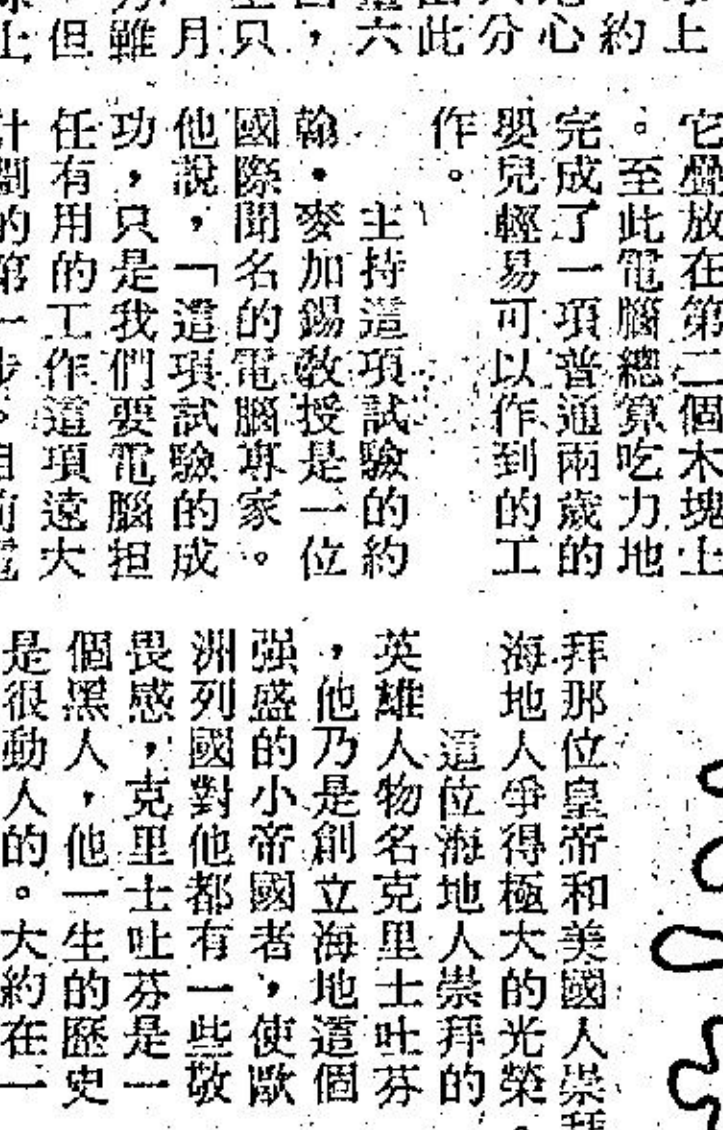 上
約
心
分
此
六
，
只
月
雖
但
上
它疊放在第二個木塊上
。至此電腦總算吃力地
完成了一項普通兩歲的
嬰兒輕易可以作到的工
作。
主持這項試驗的約
翰・麥加錫教授是一位
國際聞名的電腦專家。
他說，「這項試驗的成
功，只是我們要電腦担
任有用的工作這項遠大
計劃的第一步。目前電
拜那位皇帝和美國人崇拜
海地人爭得極大的光榮。
這位海地人崇拜的
英雄人物名克里士吐芬
，他乃是創立海地這個
强盛的小帝國者，使歐
洲列國對他都有一些敬
畏感，克里士吐芬是一
個黑人，他一生的歷史
是很動人的。大約在一